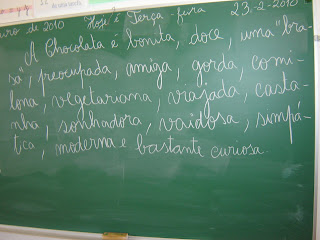 iro de 2010 Hoje é Terça-feira 23-2-2010
A Chocolata é bonita, doce, uma "bra-
sa", preocupada, amiga, gorda, comi-
lona, vegetariana, viajada, casta-
nha, sonhadora, vaidosa, simpá-
tica, moderna e bastante curiosa.